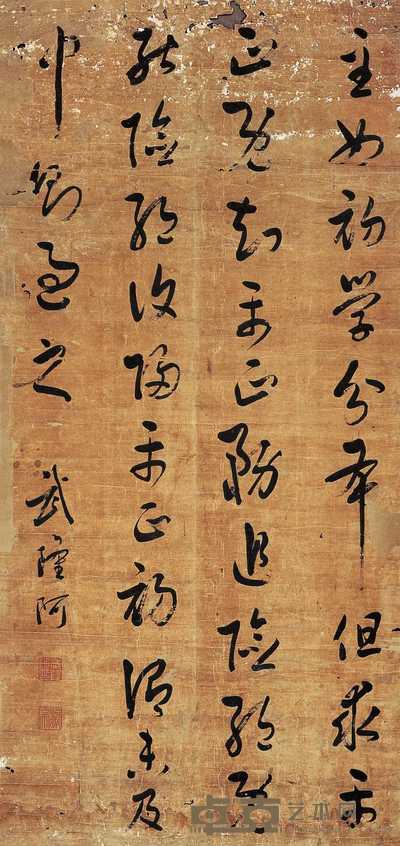 至如初學分布但求平
正既知平正務追險絕既
能險絕復歸平正初謂未及
中則過之
武隆阿
卓克艺术网